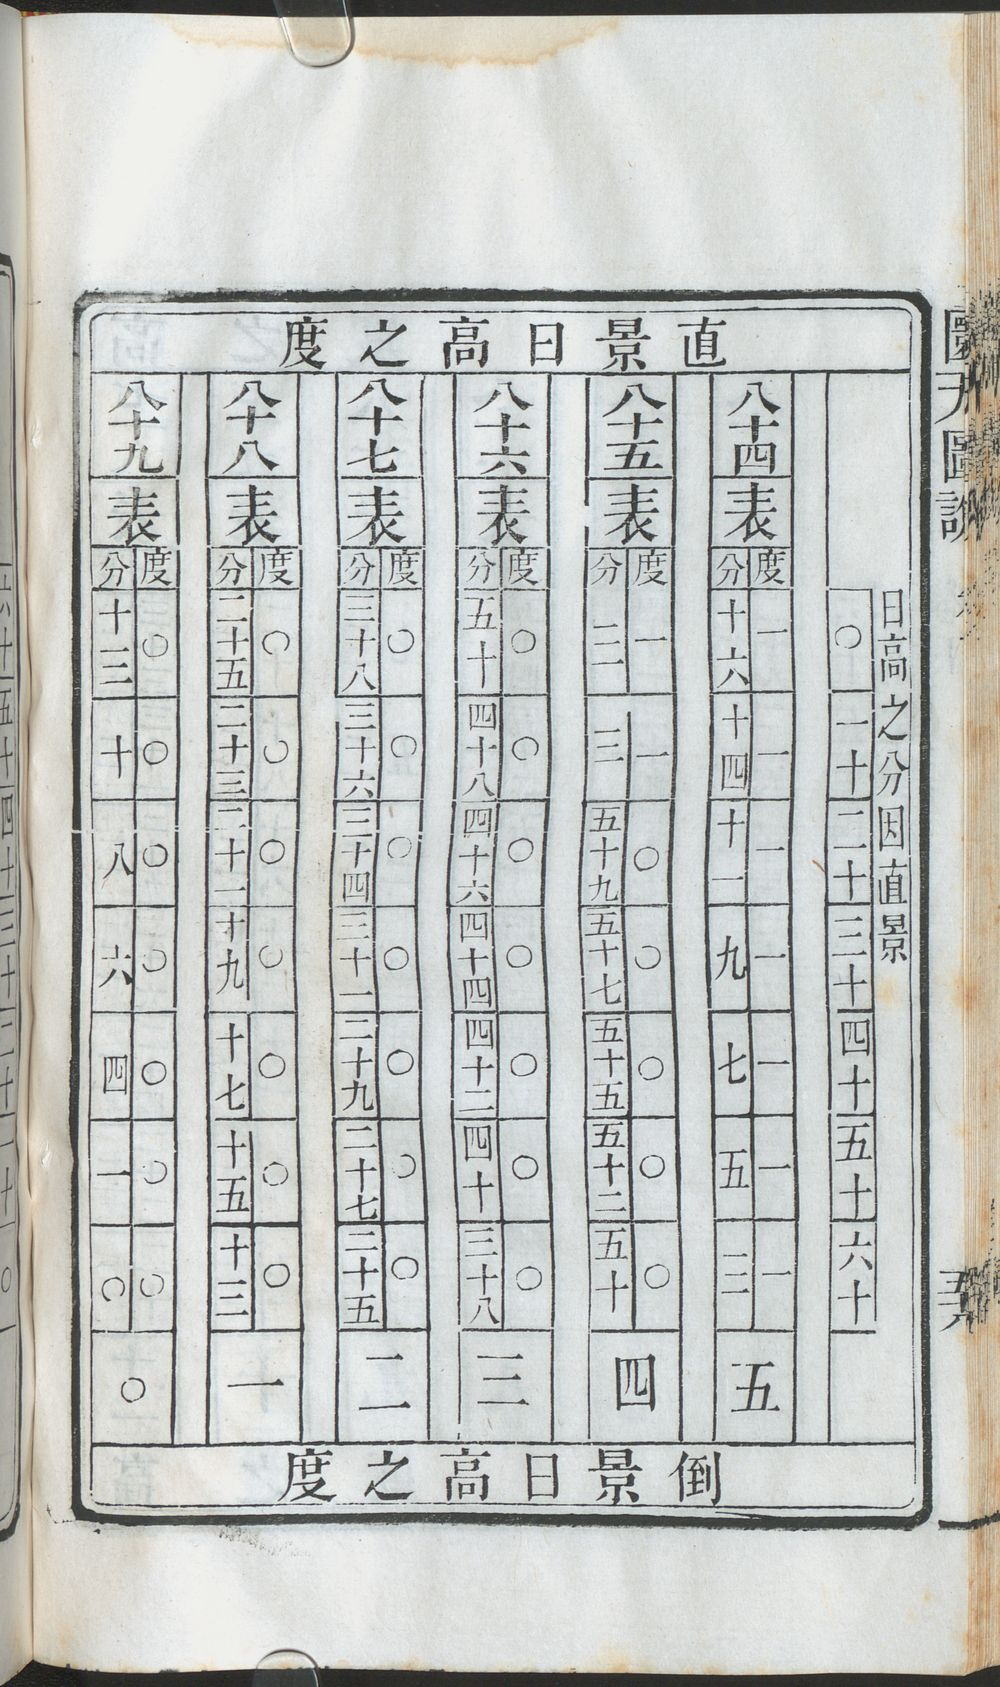 圜天圖說
五十六
直景日高之度
日高之分因直景
〇 一十 二十 三十 四十 五十 六十
八十四
表
度 一 一 一 一 一 一 一
分 十六 十四 十一 九 七 五 三
五
八十五
表
度 一 一 〇 〇 〇 〇 〇
分 三 三 五十九 五十七 五十五 五十二 五十
四
八十六
表
度 〇 〇 〇 〇 〇 〇 〇
分 五十 四十八 四十六 四十四 四十二 四十 三十八
三
八十七
表
度 〇 〇 〇 〇 〇 〇 〇
分 三十八 三十六 三十四 三十一 二十九 二十七 二十五
二
八十八
表
度 〇 〇 〇 〇 〇 〇 〇
分 二十五 二十三 二十一 十九 十七 十五 十三
一
八十九
表
度 〇 〇 〇 〇 〇 〇 〇
分 十三 十 八 六 四 一 〇
〇
倒景日高之度